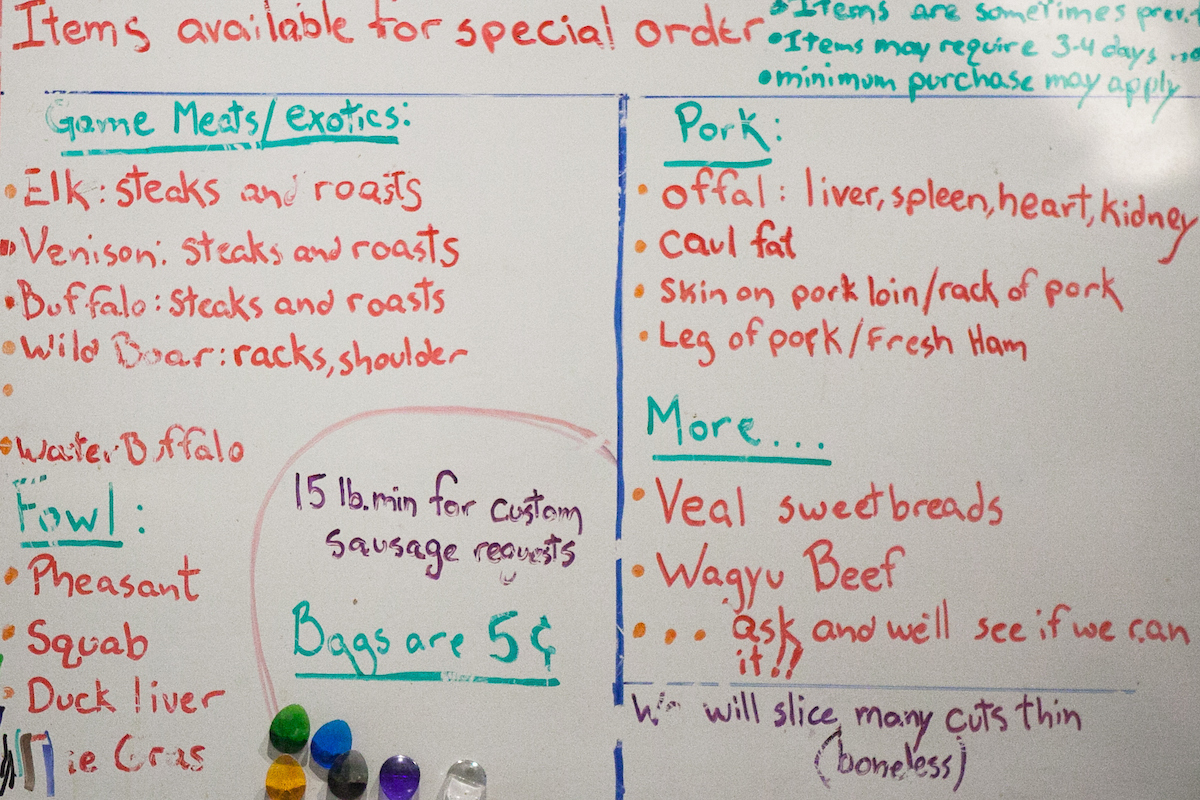 Items available for special order
• Items are sometimes
• Items may require 3-4 days
• minimum purchase may apply
Game Meats/exotics:
• Elk: steaks and roasts
• Venison: steaks and roasts
• Buffalo: steaks and roasts
• Wild Boar: racks, shoulder
•
• Water Buffalo
Fowl:
• Pheasant
• Squab
• Duck liver
Gras
15 lb. min for custom
sausage requests
Bags are 5¢
Pork:
• offal: liver, spleen, heart, kidney
• caul fat
• skin on pork loin/rack of pork
• Leg of pork/Fresh Ham
More...
• Veal sweetbreads
• Wagyu Beef
• • • ask and we'll see if we can
it!!
will slice many cuts thin
(boneless)